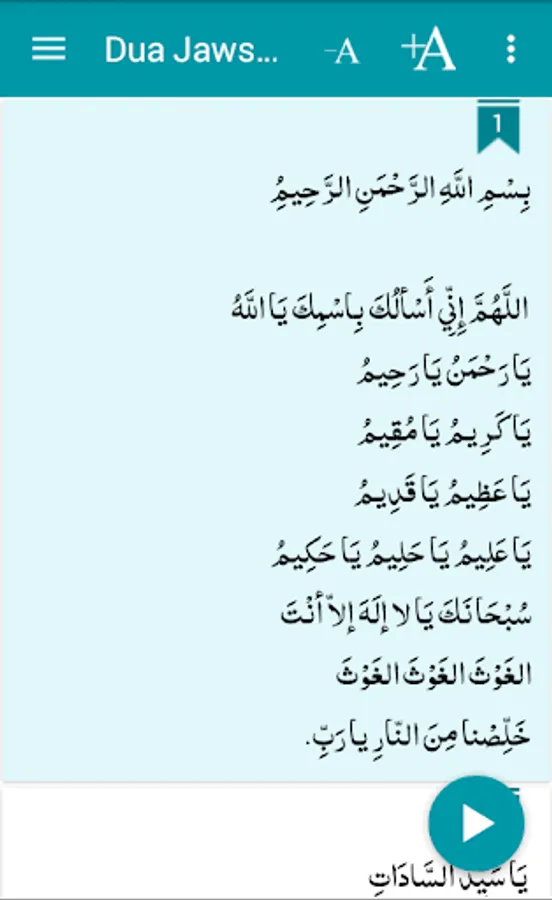 Dua Jaws...
-A
+A
1
بِسْمِ اللَّهِ الرَّحْمَنِ الرَّحِيمُ
اللَّهُمَّ إِنِّي أَسْأَلُكَ بِاسْمِكَ يَا اللَّهُ
يَا رَحْمَنُ يَا رَحِيمُ
يَا كَرِيمُ يَا مُقِيمُ
يَا عَظِيمُ يَا قَدِيمُ
يَا عَلِيمُ يَا حَلِيمُ يَا حَكِيمُ
سُبْحَانَكَ يَا لا إلَهَ إلاّ أنْتَ
الغَوْثَ الغَوْثَ الغَوْثَ
خَلِّصْنا مِنَ النّارِ يا رَبِّ.
يَا سَيِّدَ السَّادَاتِ